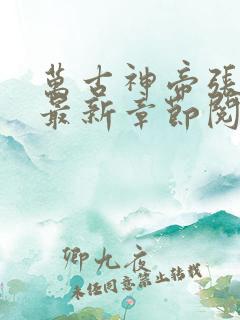 萬古神帝張
最新章節閱
卿九夜
未經同意禁止轉載